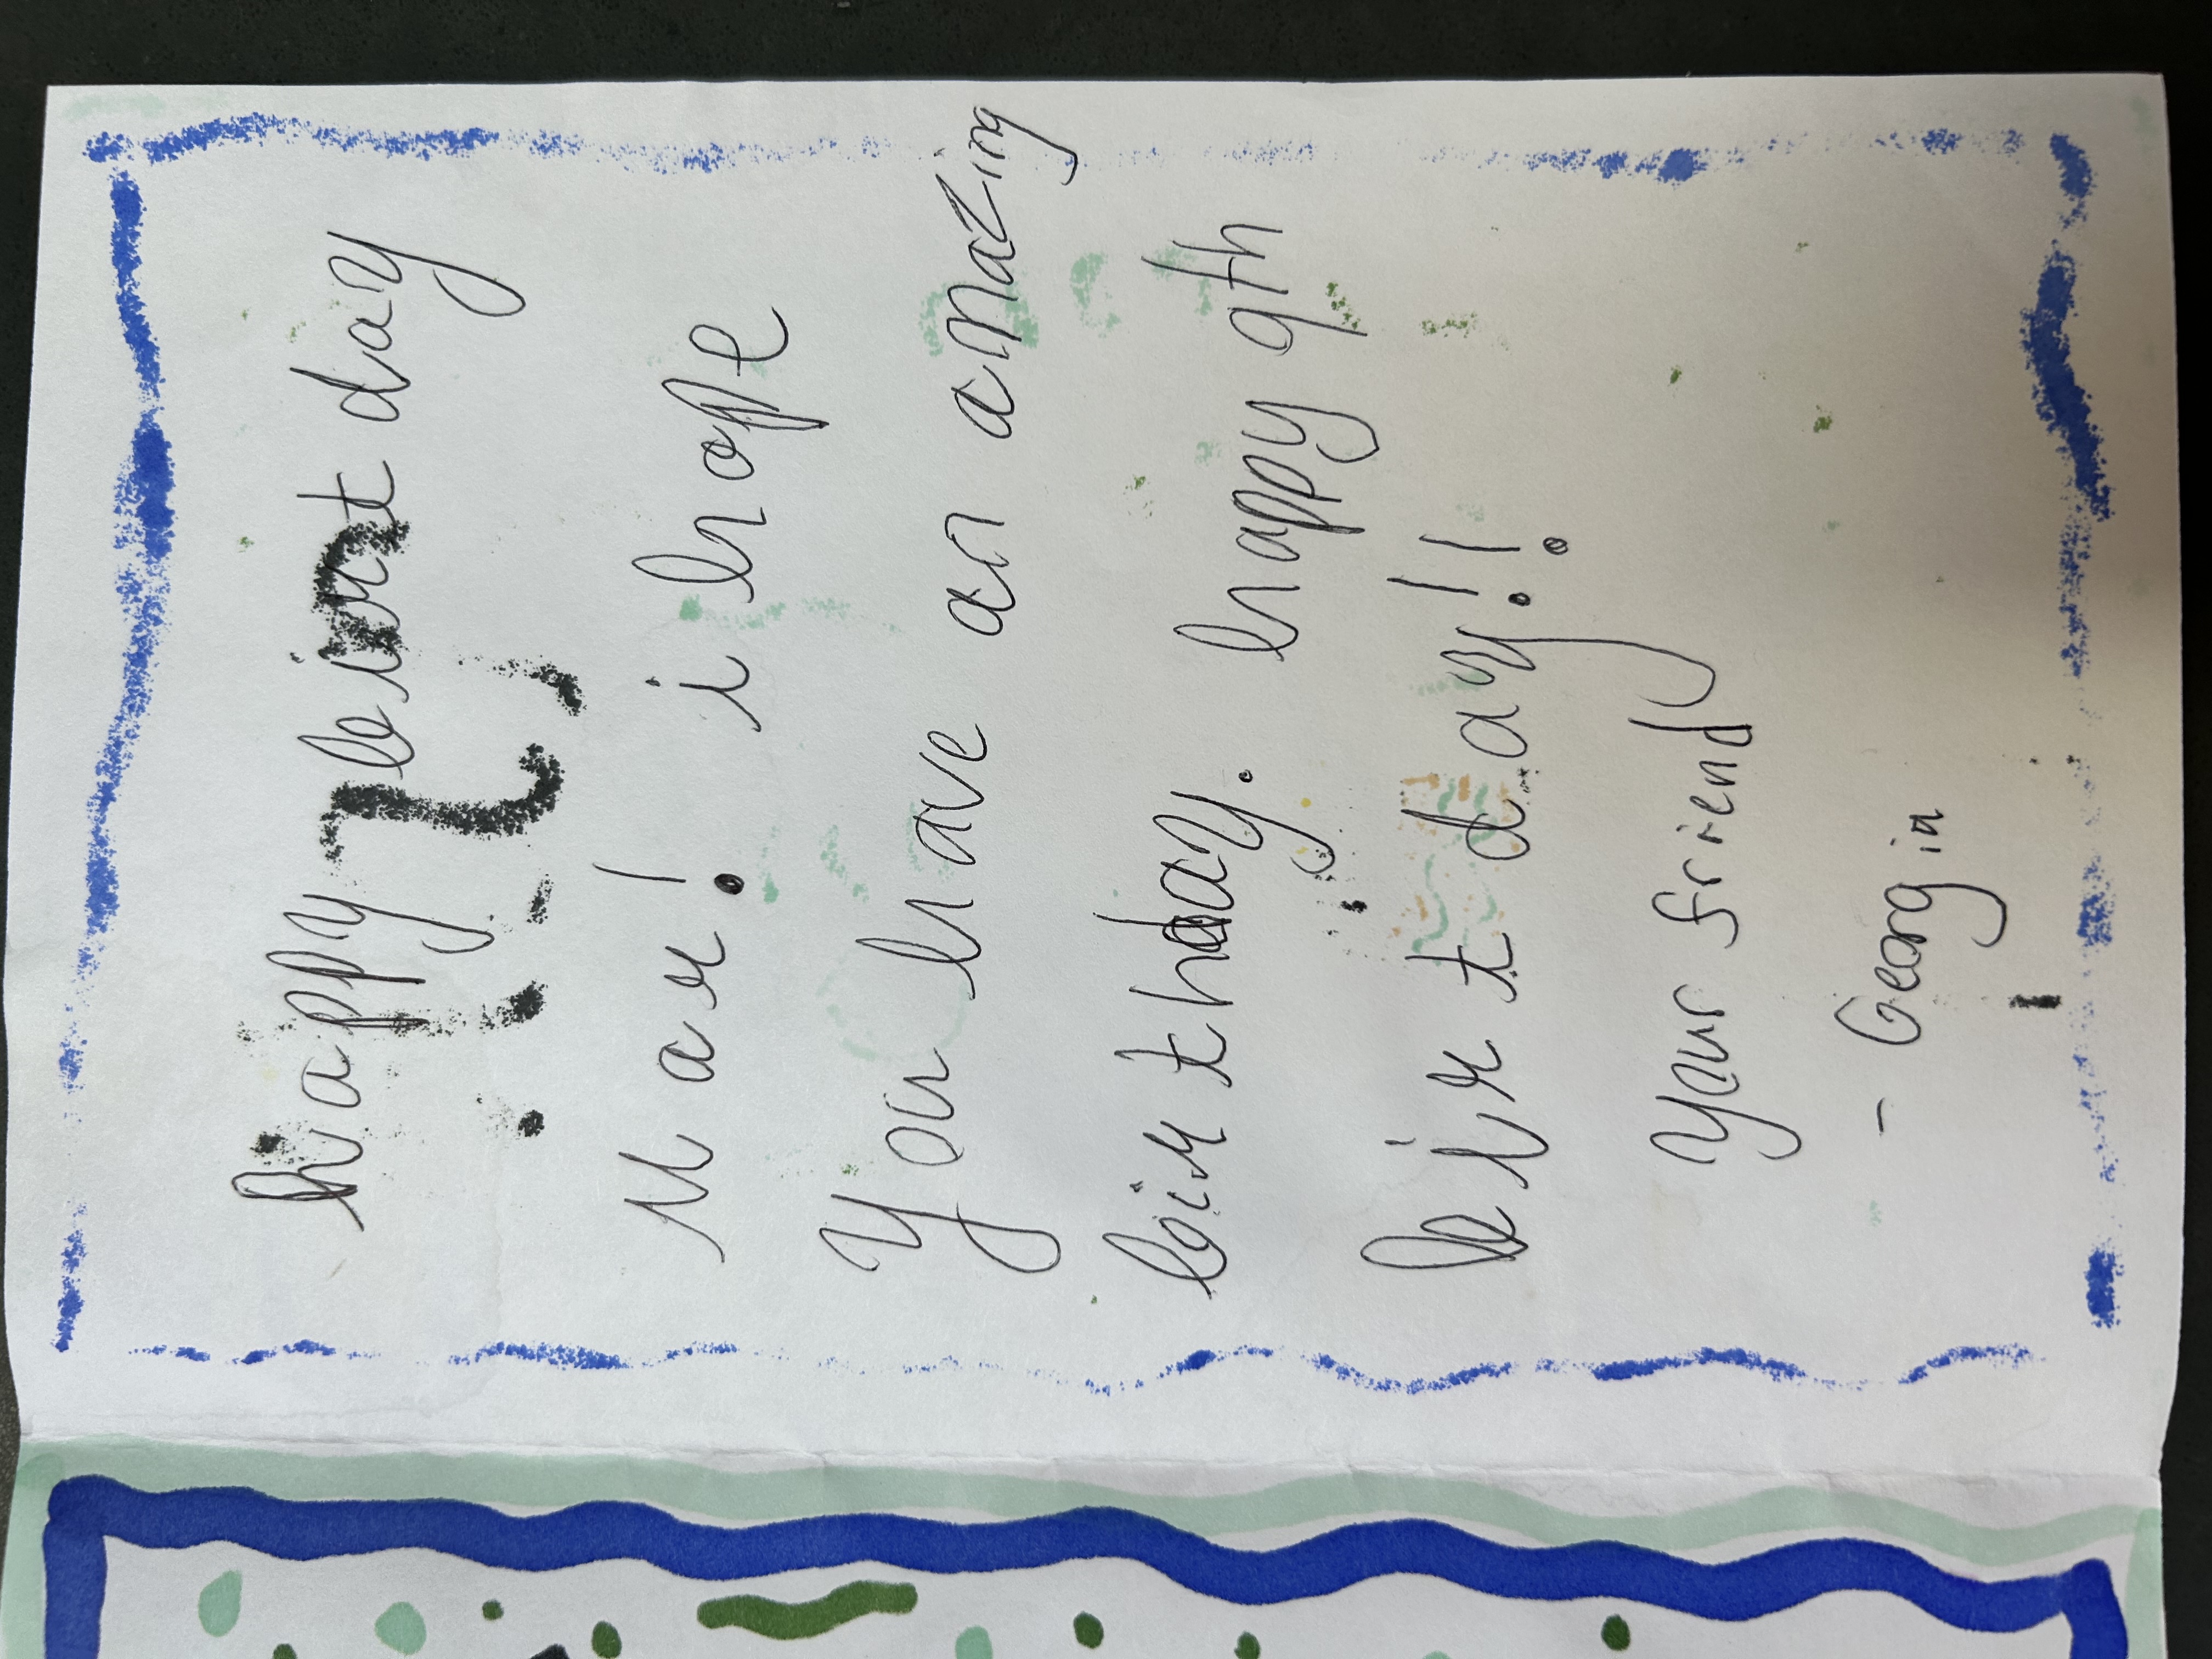 happy birt day
Max! i hope
you have an amazing
birthday. happy 9th
birt day!!
your friend
- Georgia